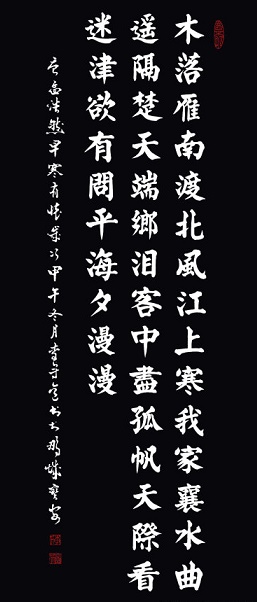 木落雁南渡北風江上寒我家襄水曲
遥隔楚天端鄉泪客中盡孤帆天際看
迷津欲有問平海夕漫漫
孟浩然早寒有懷 甲午冬月李守